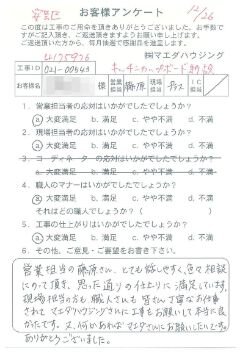 安芸区
お客様アンケート
12/26
この度は工事のご用命を頂きありがとうございました。お手数で
すがご記入頂き、ご返送頂きますようお願い申し上げます。
ご返送頂いた方から、毎月抽選で感謝品を進呈します。
㈱マエダハウジング
工事ID
021-00543
キッチンカップボード新設
お客様名
様
営業担当
藤原
現場担当
1. 営業担当者の応対はいかがでしたでしょうか?
a. 大変満足 b. 満足 c. やや不満 d. 不満
2. 現場担当者の応対はいかがでしたでしょうか?
a. 大変満足 b. 満足 c. やや不満 d. 不満
3. コーディネーターの応対はいかがでしたでしょうか?
a. 大変満足 b. 満足 c. やや不満 d. 不満
4. 職人のマナーはいかがでしたでしょうか?
a. 大変満足 b. 満足 c. やや不満 d. 不満
それはどの職人でしょうか? ( )
5. 工事の仕上がりはいかがでしたでしょうか?
a. 大変満足 b. 満足 c. やや不満 d. 不満
6. その他、ご意見・ご要望をお書き下さい。
営業担当の藤原さん、とても話しやすく、色々相談
にのって頂き、思った通りの仕上りに満足しています。
現場担当の方も職人さんも皆さん丁寧なお仕事
されて、マエダハウジングさんに工事をお願いして本当に良
かったです。又、何かあればマエダさんにお願いしたいです。
ありがとうございました。